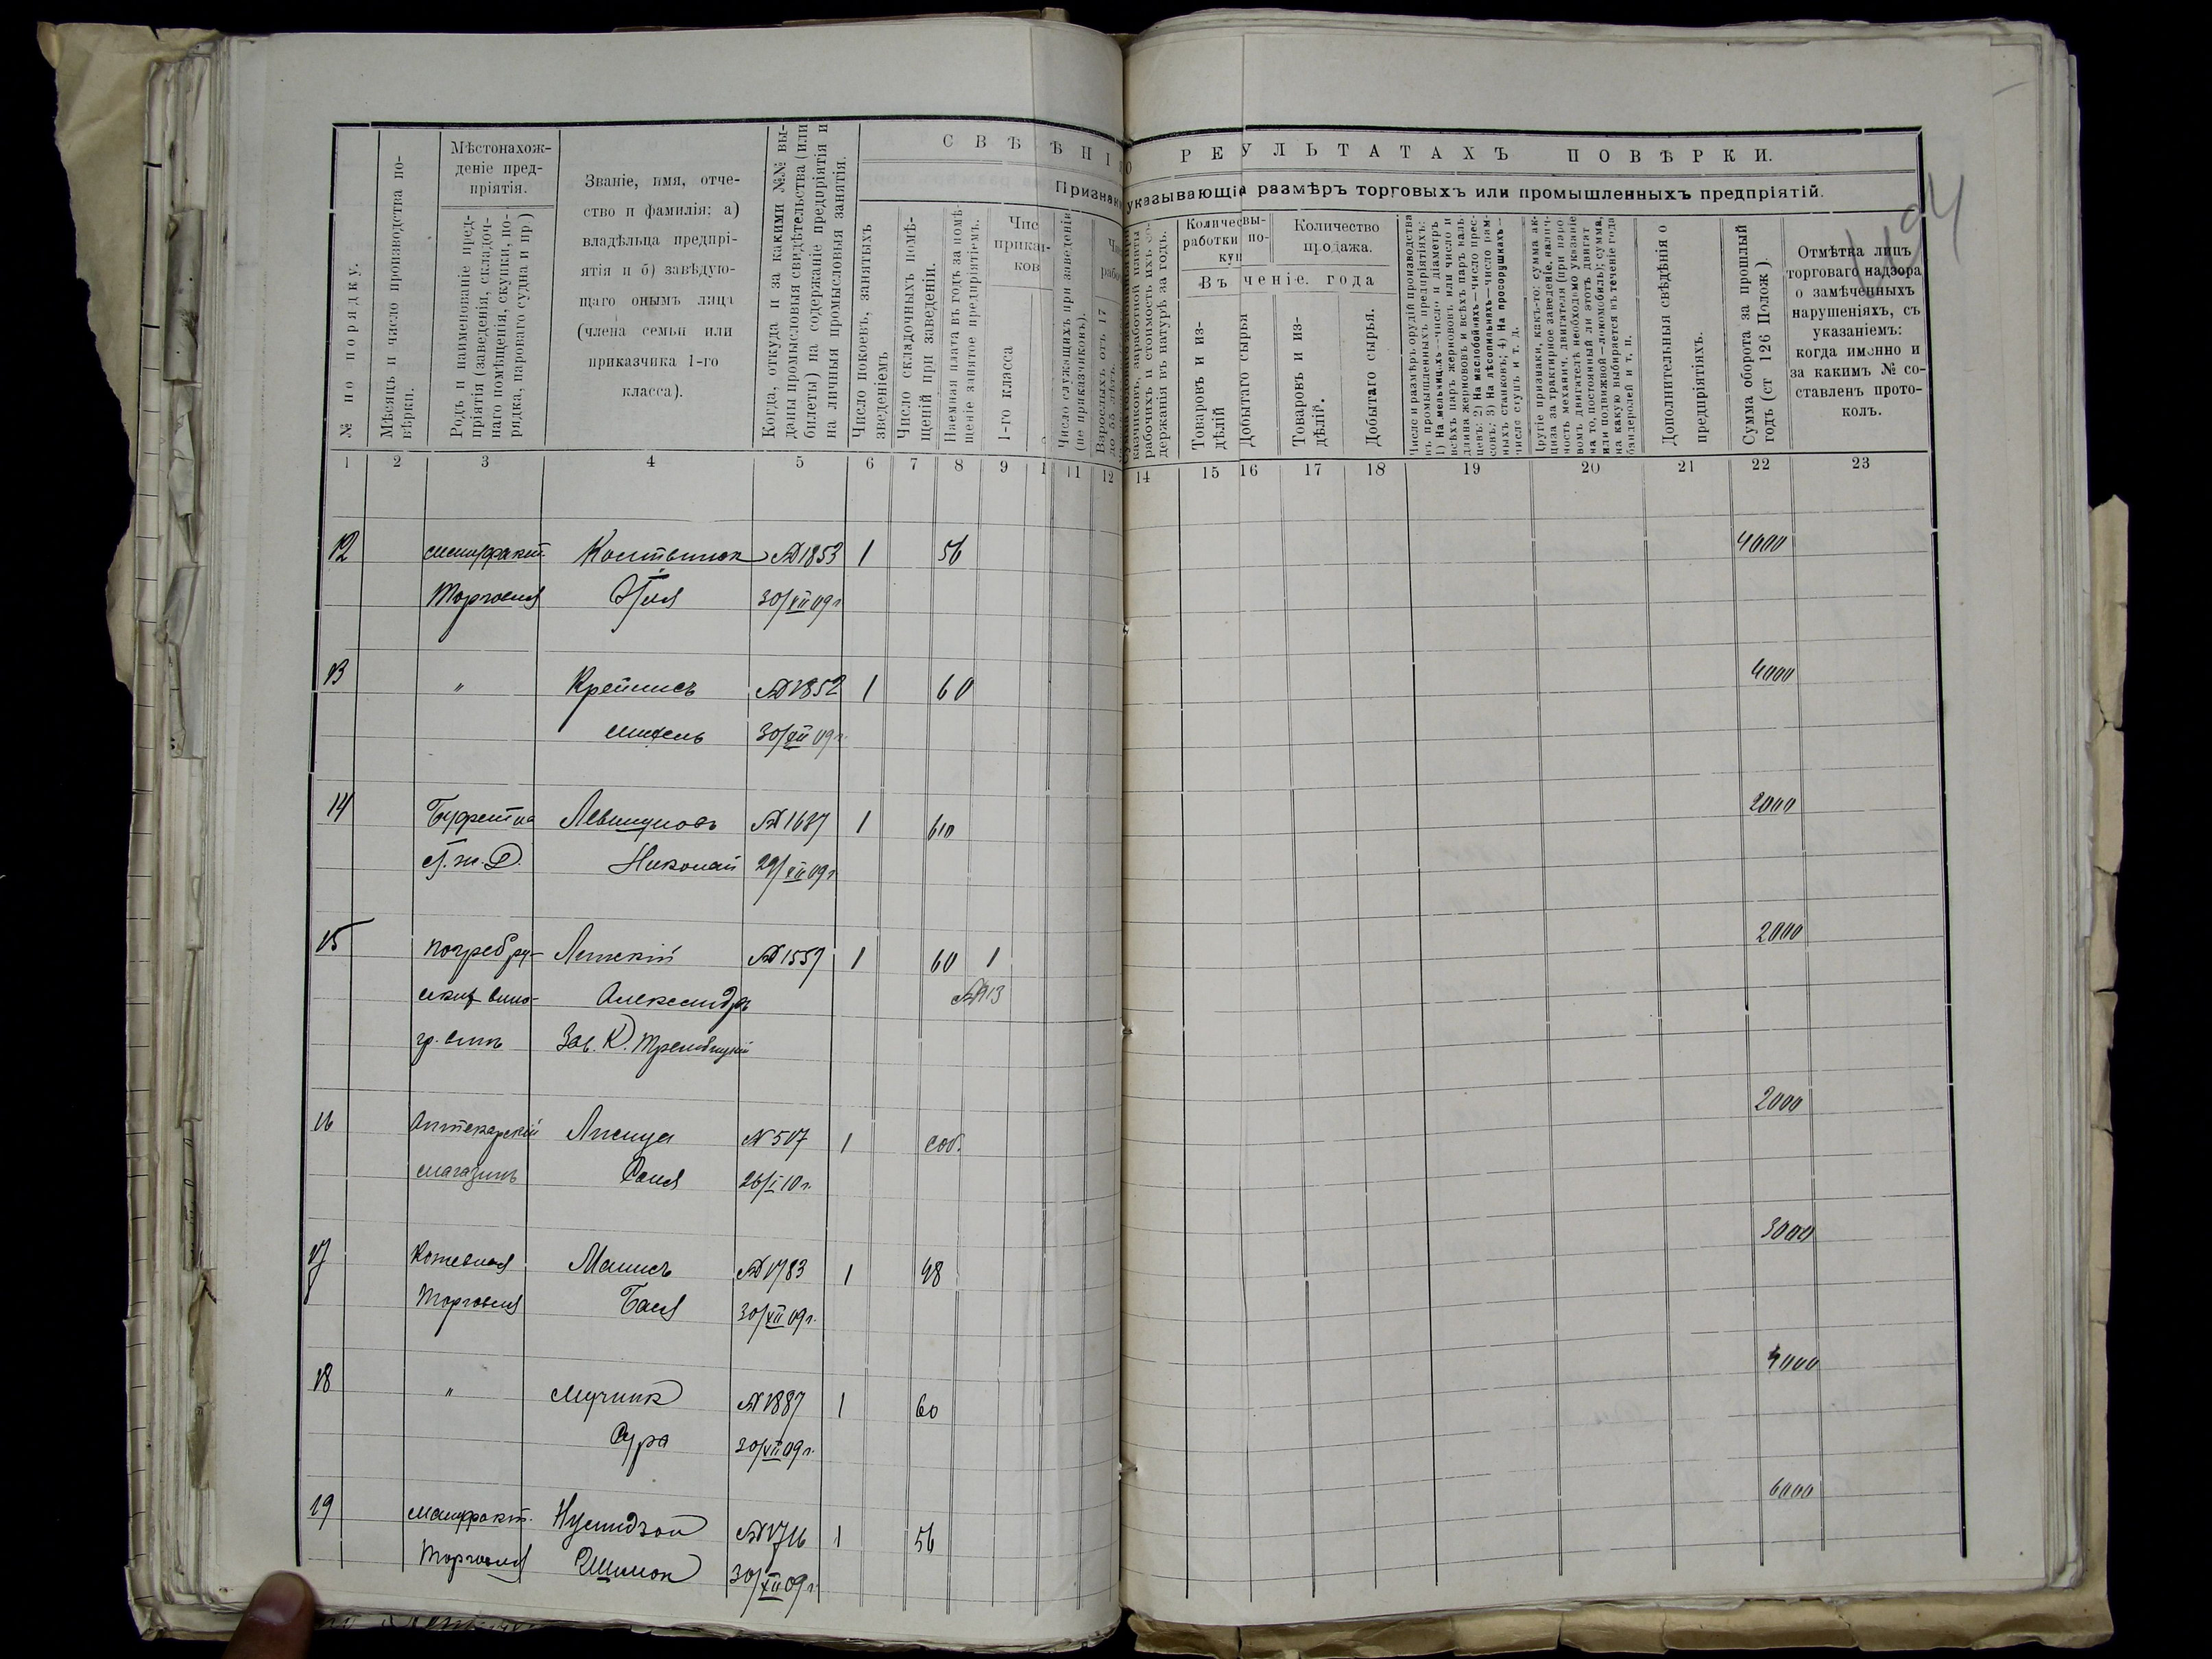 СВѢДѢНІЯ О РЕЗУЛЬТАТАХЪ ПОВѢРКИ.
Признаки указывающіе размѣръ торговыхъ или промышленныхъ предпріятій.
№ по порядку.
Мѣсяцъ и число производства повѣрки.
Мѣстонахож-
деніе пред-
пріятія.
Родъ и наименованіе пред-
пріятія (заведенія, складоч-
наго помѣщенія, скупки, по-
рядка, пароваго судна и пр)
Званіе, имя, отче-
ство и фамилія: а)
владѣльца предпрі-
ятія и б) завѣдую-
щаго онымъ лица
(члена семьи или
приказчика 1-го
класса).
Когда, откуда и за какими №№ вы-
даны промысловыя свидѣтельства (или
билеты) на содержаніе предпріятія и
на личныя промысловыя занятія.
Число покоевъ, занятыхъ
зведеніемъ
Число складочныхъ помѣ-
щеній при заведеніи.
Наемная плата въ годъ за помѣ-
щеніе занятое предпріятіемъ.
Чис
приказ-
ков
1-го класса
Число служащихъ при заведеніи
(не приказчиковъ).
Взрослыхъ отъ 17
до 55 лѣтъ.
казчиковъ, заработной платы
рабочихъ и стоимость ихъ со-
держанія въ натурѣ за годъ.
Количес вы-
работки по-
куп
Количество
продажа.
Въ ченіе. года
Товаровъ и из-
дѣлій
Добытаго сырья
Товаровъ и из-
дѣлій.
Добытаго сырья.
Число и размѣръ орудій производства
въ промышленныхъ предпріятіяхъ:
1) На мельницахъ—число и діаметръ
всѣхъ паръ жернововъ или число и
длина жернововъ и всѣхъ паръ валь-
цевъ: 2) На маслобойняхъ—число прес-
совъ; 3) На лѣсопильняхъ—число рам-
ныхъ станковъ; 4) На просорушкахъ—
число ступъ и т. д.
Другіе признаки, какъ-то: сумма ак-
циза за трактирное заведеніе, налич-
ность механич. двигателя (при паро-
вомъ двигателѣ необходимо указаніе
на то, постоянный ли этотъ двигат
или подвижной—локомобиль); сумма,
на какую выбирается въ теченіе года
бандеролей и т. п.
Дополнительныя свѣдѣнія о
предпріятіяхъ.
Сумма оборота за прошлый
годъ (ст 126 Полож ).
Отмѣтка лицъ
торговаго надзора
о замѣченныхъ
нарушеніяхъ, съ
указаніемъ:
когда именно и
за какимъ № со-
ставленъ прото-
колъ.
1 2 3 4 5 6 7 8 9 1 11 12 14 15 16 17 18 19 20 21 22 23
12 мануфакт. №1853 1 56 4000
Торговля 30/XII 09г
13 " Крейнисъ №1852 1 60 4000
Михель 30/XII 09г.
14 Буфет на Левшуновъ №1687 1 60 2000
ст. ж. д. Николай 29/XII 09г
15 погреб ру- Ленскій №1559 1 60 1 2000
скихъ вино- Александръ №913
гр. винъ Зав. К. Трембицкій
16 Аптекарскій Лисица № 507 1 соб. 2000
магазинъ Соня 26/I 10г.
17 Кожевная Манисъ №1783 1 48 3000
Торговля Бася 30/XII 09г.
18 " Мучник №1887 1 60 4000
Сура 30/XII 09г.
19 мануфакт. №1716 1 56 6000
Торговля Шимон 30/XII 09г